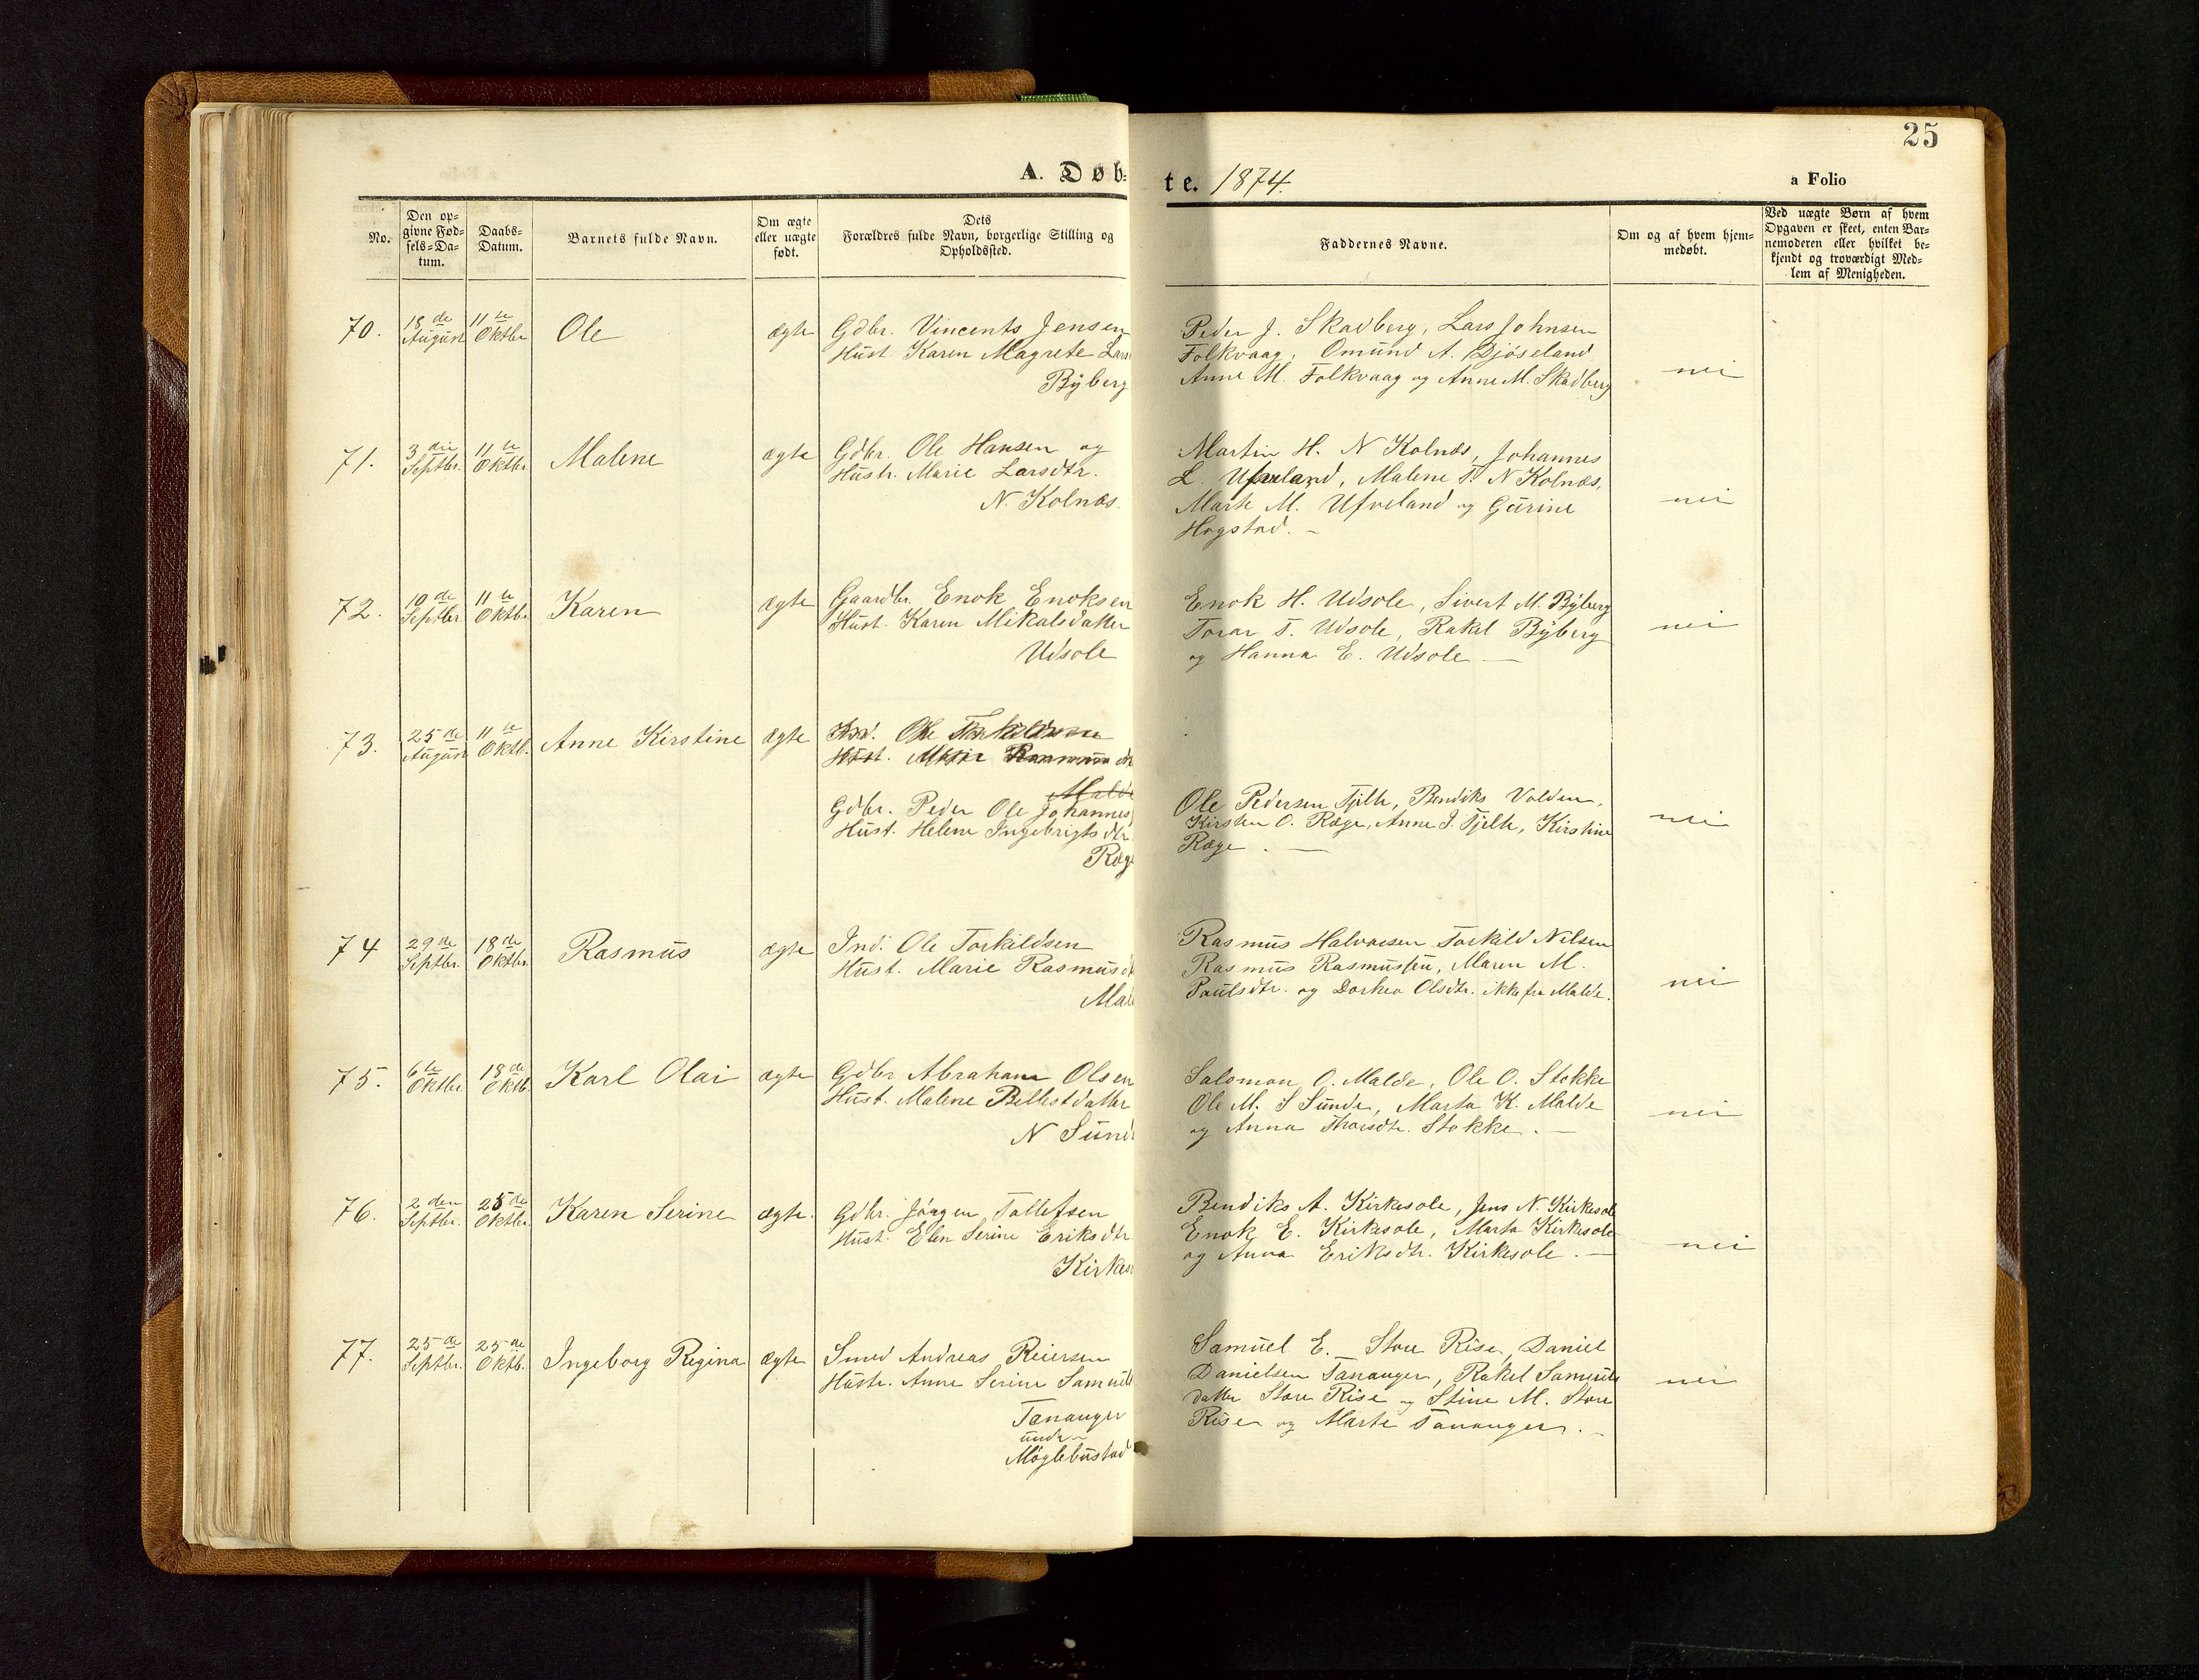 25
A. Døb-
te. 1874.
a Folio
No.
Den op-
givne Fød-
sels-Da-
tum.
Daabs-
Datum.
Barnets fulde Navn.
Om ægte
eller uægte
født.
Dets
Forældres fulde Navn, borgerlige Stilling og
Opholdssted.
Faddernes Navne.
Om og af hvem hjem-
medøbt.
Ved uægte Børn af hvem
Opgaven er skeet, enten Bar-
nemoderen eller hvilket be-
kjendt og troværdigt Med-
lem af Menigheden.
70.
18de
August
11te
Oktbr
Ole
ægte
Gdbr. Vincents Jensen
Hust. Karen Magrete Lars
Byberg
Peder J. Skadberg, Lars Johnsen
Folkvaag, Omund A. Djøseland
Anne M. Folkvaag og Anne M. Skadberg
nei
71.
3die
Septbr.
11te
Oktbr.
Malene
ægte
Gdbr. Ole Hansen og
Hustr. Marie Larsdtr.
N. Kolnæs.
Martin H. N Kolnæs, Johannes
L. Ufveland, Malene T. N Kolnæs,
Marte M. Ufveland og Gurine
Hogstad. -
nei
72.
10de
Septbr.
11te
Oktbr.
Karen
ægte
Gaardbr. Enok Enoksen
Hust. Karen Mikalsdatter
Udsole
Enok H. Udsole, Sivert M. Byberg
Torar T. Udsole, Rakel Byberg
og Hanna E. Udsole —
nei
73.
25de
August
11te
Oktb.
Anne Kirstine
ægte
Ind. Ole Torkildsen
Hust. Marie Rasmusdtr
Malde
Gdbr. Peder Ole Johannes
Hust. Helene Ingebrigtsdtr
Ræge
Ole Pedersen Tjelte, Bendiks Volden,
Kirsten O. Ræge, Anne J. Tjelte, Kirstine
Ræge . —
nei
74
29de
Septbr.
18de
Oktbr.
Rasmus
ægte
Ind. Ole Torkildsen
Hust. Marie Rasmusd
Mal
Rasmus Halvorsen Torkild Nilsen
Rasmus Rasmussen, Maren M.
Paulsdtr. og Dorthea Olsdtr. ikke fra Malde.
nei
75.
6te
Oktbr.
18de
Oktb.
Karl Olai
ægte
Gdbr Abraham Olsen
Hust. Malene Bellestdatter
N Sund
Salomon O. Malde, Ole O. Stokke
Ole M. S Sunde, Marta K. Malde
og Anna Thorsdtr. Stokke. —
nei
76.
2den
Septbr.
25de
Oktbr.
Karen Serine
ægte.
Gdbr. Jørgen Tollefsen
Hust. Elen Serine Eriksdtr.
Kirkes
Bendiks A. Kirkesole, Jens N. Kirkesole
Enok E. Kirkesole, Marta Kirkesole
og Anna Eriksdtr. Kirkesole. —
nei
77.
25de
Septbr.
25de
Oktb.
Ingeborg Regina
ægte
Smed Andreas Reiersen
Hustr. Anne Serine Samuels
Tananger
under
Møglebustad
Samuel E. Store Rise, Daniel
Danielsen Tananger, Rakel Samuels
datter Store Rise og Stine M. Store
Rise og Marte Tananger. -
nei